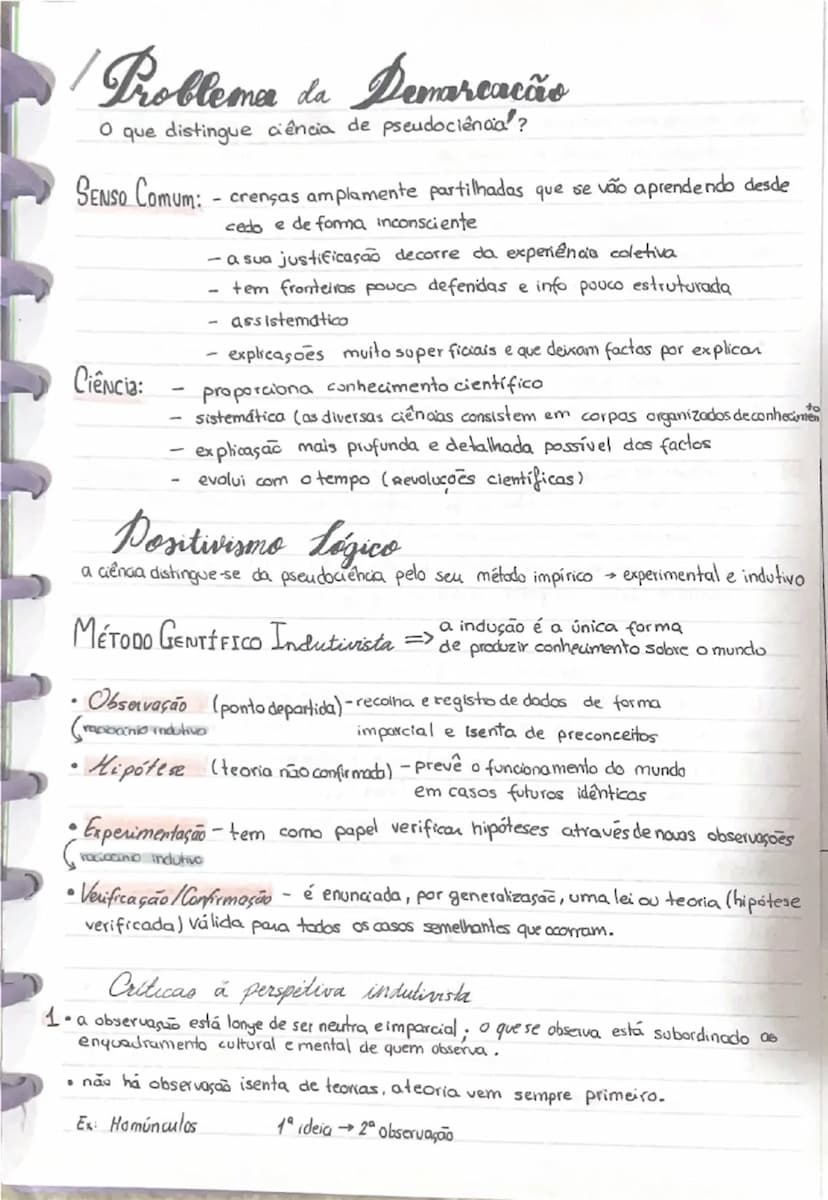 Problema da Demarcação
O que distingue ciência de pseudociência?
SENSO COMUM: - crenças amplamente partilhadas que se vão aprendendo desde
cedo e de forma inconsciente
- a sua justificação decorre da experiência coletiva
- tem fronteiras pouco defenidas e info pouco estruturada
- assistemático
- explicações muito superficiais e que deixam factos por explicar
Ciência: - proporciona conhecimento científico
- sistemática (as diversas ciências consistem em corpos organizados de conhecimento
- explicação mais profunda e detalhada possível dos factos
- evolui com o tempo (Revoluções científicas)
Positivismo Lógico
a ciência distingue-se da pseudociência pelo seu método impírico → experimental e indutivo
MÉTODO CIENTÍFICO Indutivista => a indução é a única forma
de produzir conhecimento sobre o mundo
• Observação (ponto departida) - recolha e registo de dados de forma
raciocínio indutivo imparcial e isenta de preconceitos
• Hipótese (teoria não confirmada) - prevê o funcionamento do mundo
em casos futuros idênticos
• Experimentação - tem como papel verificar hipóteses através de novas observações
raciocínio indutivo
• Verificação/Confirmação - é enunciada, por generalização, uma lei ou teoria (hipótese
verificada) válida para todos os casos semelhantes que ocorram.
Críticas á perspetiva indutivista
1 • a observação está longe de ser neutra e imparcial; o que se observa está subordinado ao
enquadramento cultural e mental de quem observa.
• não há observação isenta de teorias, a teoria vem sempre primeiro.
Ex: Homúnculos 1ª ideia → 2ª observação